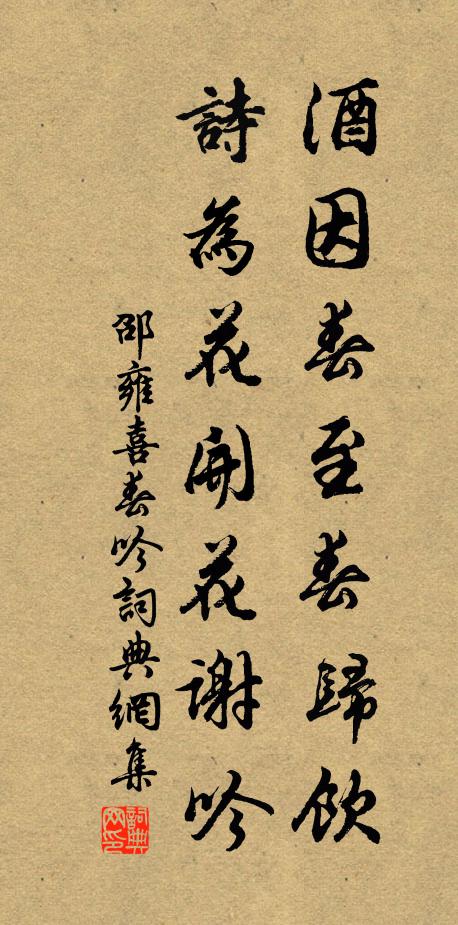 酒因春至春歸飲
詩為花開花謝吟
邵雍喜春吟詞典網集
詞典網印